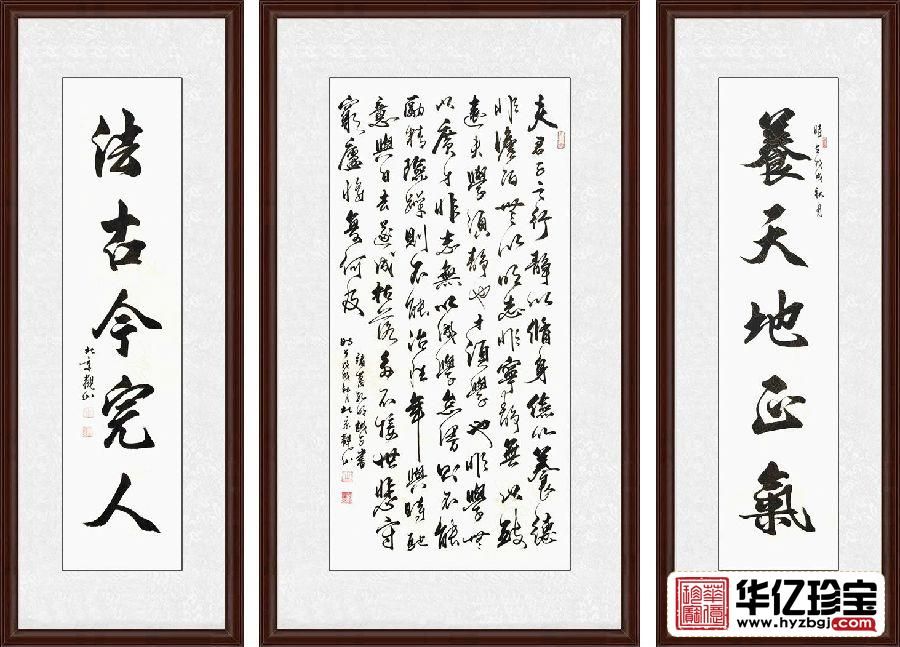 養天地正氣
時在戊戌秋月
夫君子之行靜以脩身儉以養德
非澹泊無以明志非寧靜無以致
遠夫學須靜也才須學也非學無
以廣才非志無以成學怠慢則不能
勵精險躁則不能治性年與時馳
意與日去遂成枯落多不接世悲守
窮廬將復何及
諸葛孔明誡子書
戊戌秋月北京觀山
法古今完人
北京觀山
華億珍寶
华亿珍宝
www.hyzbgj.com